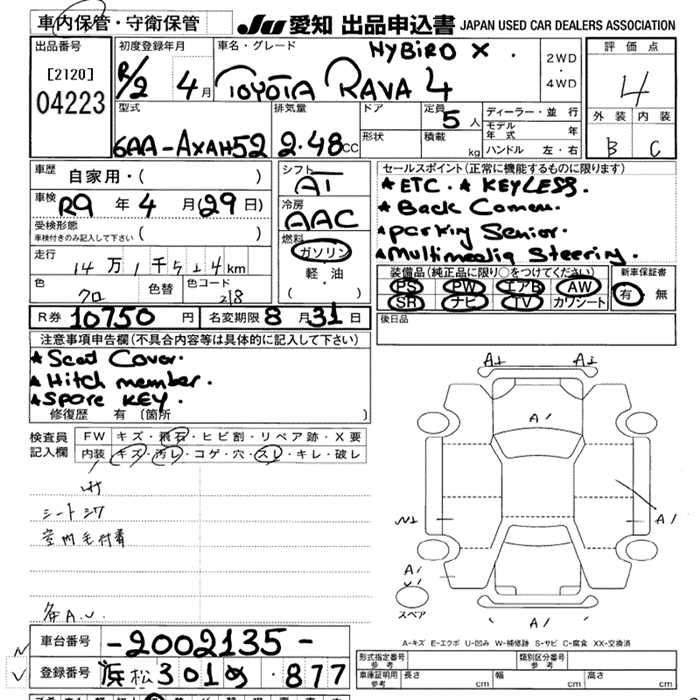 車内保管・守衛保管
JU 愛知 出品申込書 JAPAN USED CAR DEALERS ASSOCIATION
出品番号
[2120]
04223
初度登録年月
R/2 4月
車名・グレード
HYBiRD X .
TOYOTA RAVA 4
2WD
・
4WD
評価点
4
外装 内装
B C
型式
6AA-AXAH52
排気量
2.48cc
ドア
形状
定員
5人
積載
kg
ディーラー・並行
モデル年式 年
ハンドル 左・右
車歴
自家用・( )
車検
R9年4月(29日)
受検形態
車検付きのみ記入して下さい ( )
走行
14万1千524km
色
クロ
色替
色コード
218
シフト
AT
冷房
AAC
燃料
ガソリン
・
軽・油
( )
セールスポイント(正常に機能するものに限ります)
★ ETC. ★ KEYLESS.
★ Back Camera.
★ parking Senior.
★ multimedia Steering.
装備品(純正品に限り○をつけてください)
PS PW エアB AW
SR ナビ TV カワシート
新車保証書
有 無
R券 10750円 名変期限 8月31日
後日品
注意事項申告欄(不具合内容等は具体的に記入して下さい)
★ Seat Cover.
★ Hitch member.
★ SPare KEY.
修復歴 有 (箇所
検査員記入欄
FW キズ・飛石・ヒビ割・リペア跡・X要
内装 キズ・汚レ・コゲ・穴・スレ・キレ・破レ
シートシワ
室内毛付着
各A.U.
A1 A1
A1
A1
N1
A1
A1
スペア
A-キズ E-エクボ U-凹み W-補修跡 S-サビ C-腐食 XX-交換済
車台番号 -2002135-
登録番号 浜松 301 め ・877
形式指定番号
参考
類別区分番号
参考
車庫証明用
参考
長さ cm 幅 cm 高さ cm